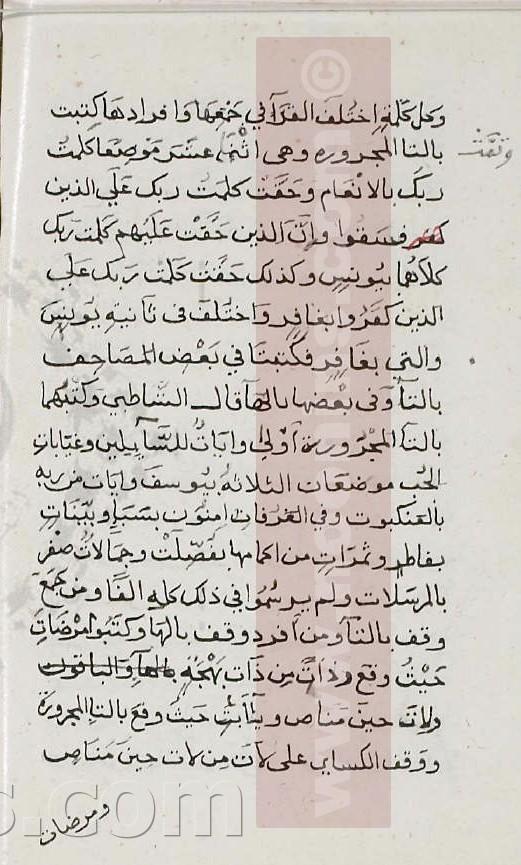 وكل كلمة اختلف القرآ في جمعها وافرادها كتبت
بالتا المجروره وهي اثنتا عشر موضعا كلمت
وتمت
ربك بالانعام وحقت كلمت ربك علي الذين
فسقوا وانّ الذين حقّت عليهم كلمت ربك
كلاهما بيونس وكذلك حقت كلمت ربك علي
الذين كفروا بغافر واختلف في ثانية يونس
والتي بغافر فكتبتا في بعض المصاحف
بالتآ وفي بعضها بالهآ قال الشاطبي وكتبهما
بالتآ المجرورة أولى وايات للسّآيلين وغيابات
الجب موضعات الثلاثه بيوسف وايات من ربه
بالعنكبوت وفي الغرفات امنون بسبأ وبيّنات
بفاطر وثمرات من اكمامها بفصّلت وجمالات صفر
بالمرسلات ولم يرسموا في ذلك كله الفًا ومن جمع
وقف بالتآ ومن أفرد وقف بالها وكتبوا مرضات
حيث وقع وذات من ذات بهجة
ولات حين مناص ويآأبت حيث وقع بالتا المجرورة
ووقف الكساي على لات من لات حين مناص
ومرضات
www.
.com
s.com
©